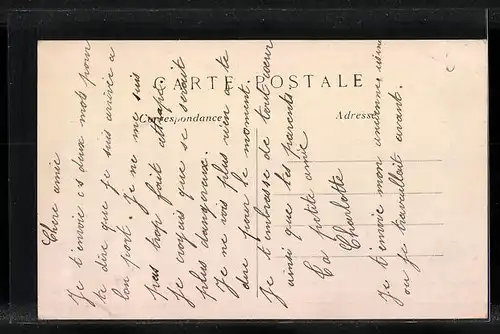 CARTE POSTALE
Correspondance
Adresse
Chere amie
Je t'envoie ces deux mots pour
te dire que je suis arrivée a
bon port. Je ne me suis
pas trop fait attrapé.
Je croyais que se serait
plus dangereux.
Je ne vois plus rien a te
dire pour le moment.
Je t'embrasse de tout cœur
ainsi que tes parents.
Ta petite amie
Charlotte
Je t'envoie mon ancienne usine
ou je travaillait avant.